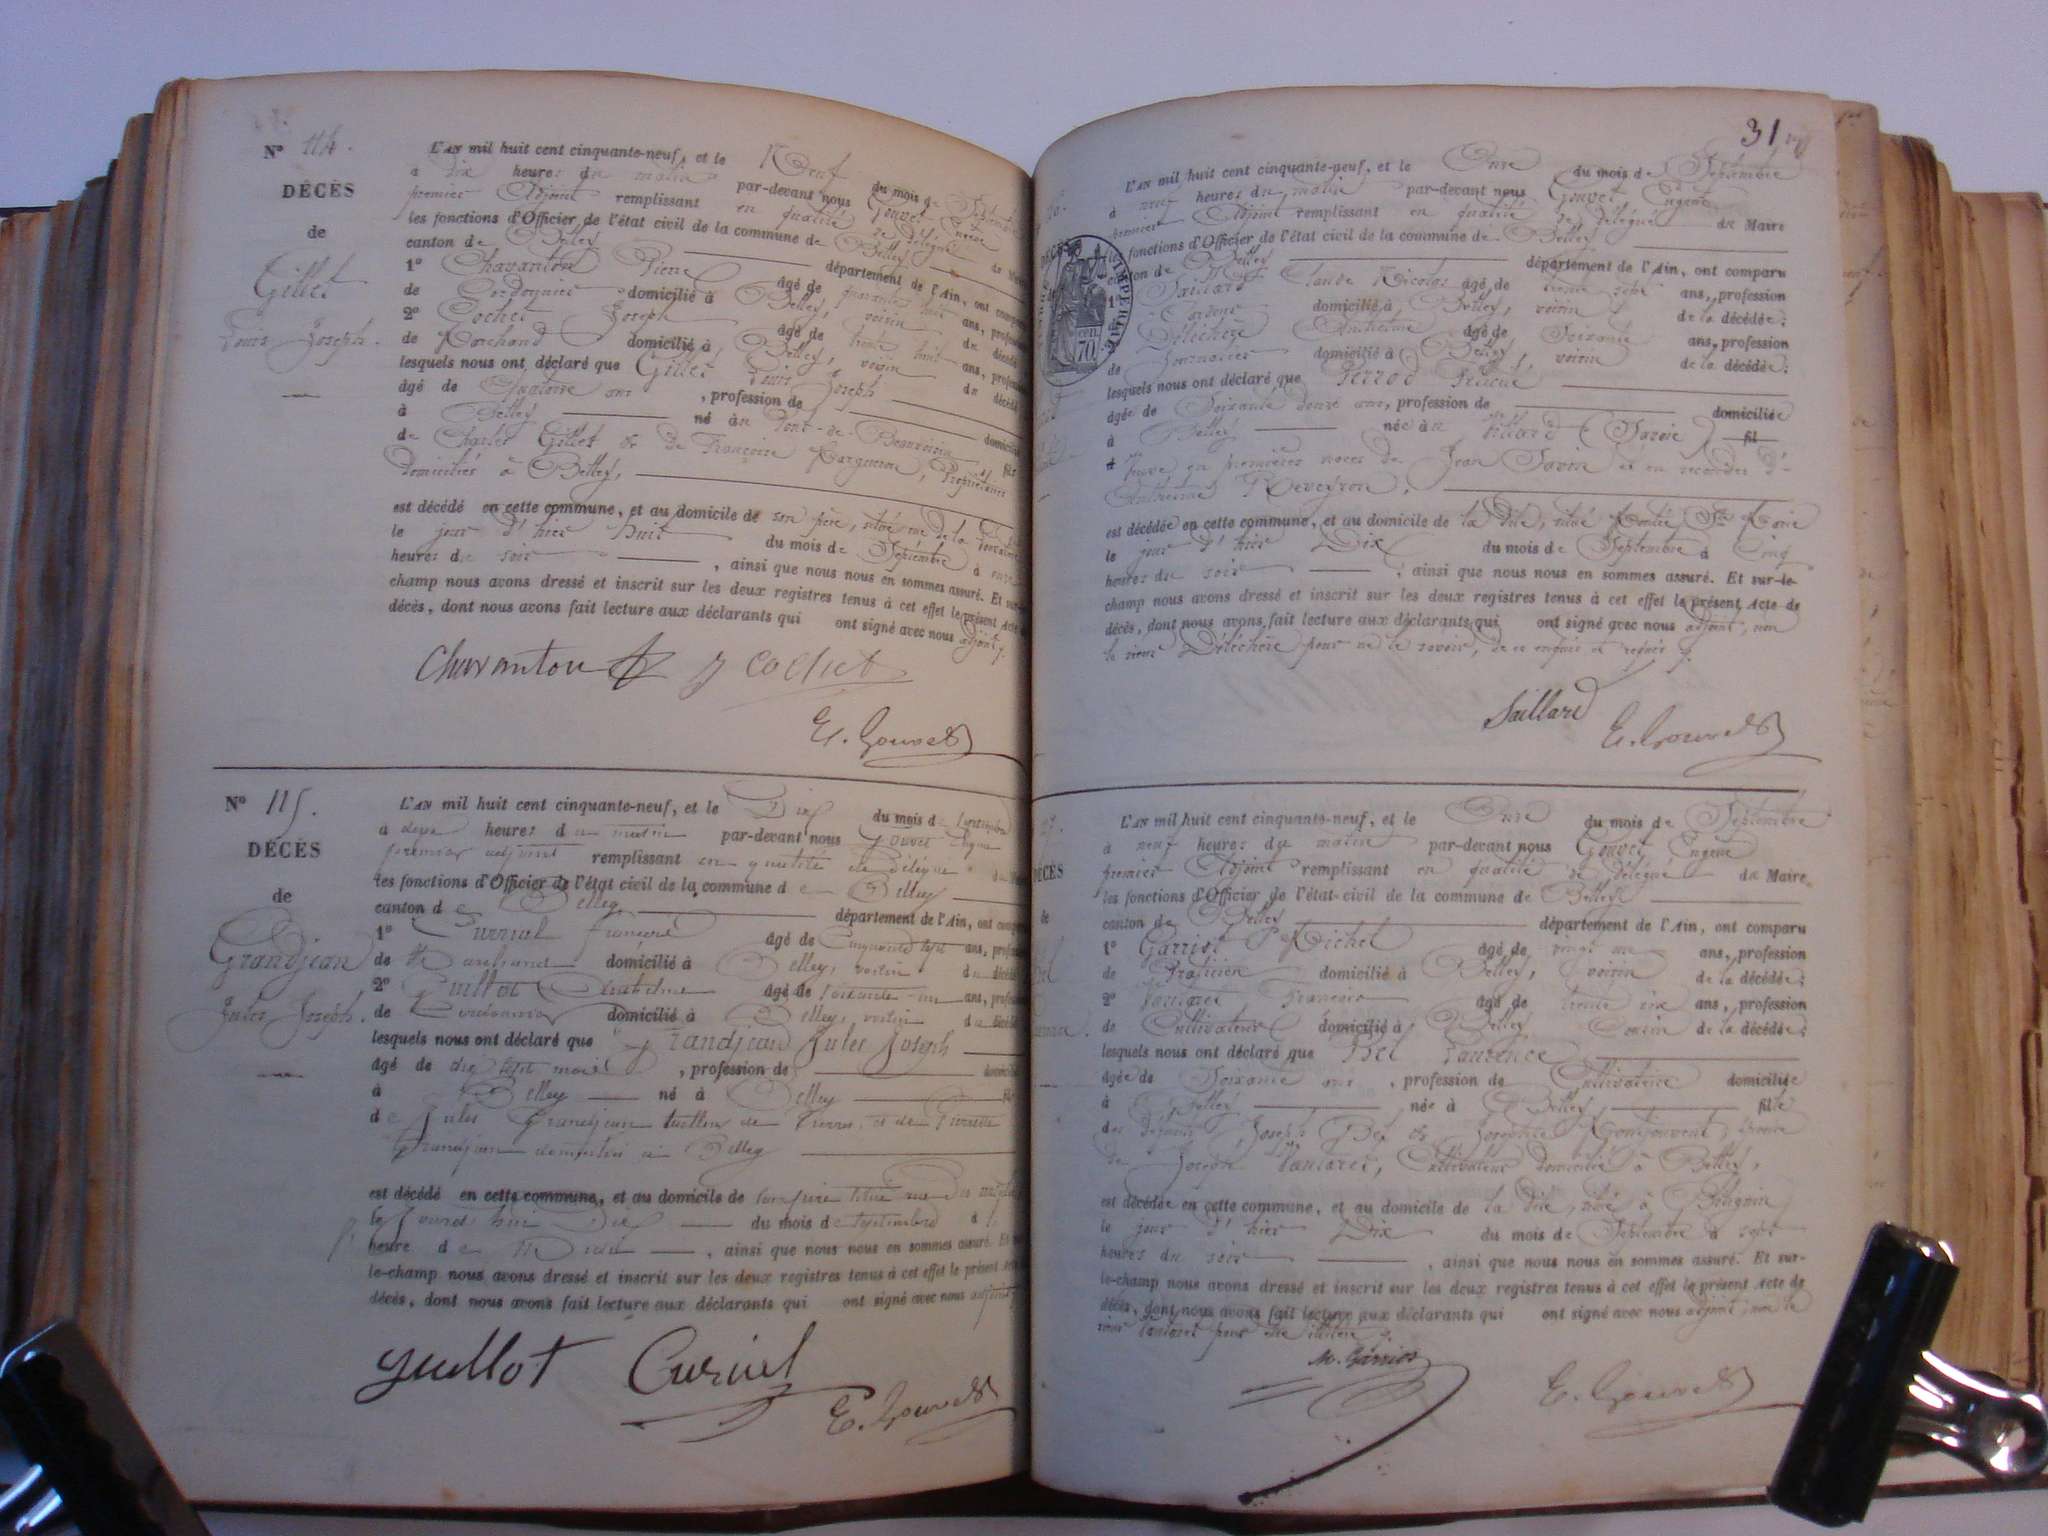 N° 114.
DÉCÈS
de
Gillet
Louis Joseph.
L'AN mil huit cent cinquante-neuf, et le Neuf du mois de Septembre
à dix heures du matin par-devant nous Gouvet Eugène
premier Adjoint remplissant en qualité de délégué de
les fonctions d'Officier de l'état civil de la commune de Belley
canton de Belley département de l'Ain, ont
1° Chavanton Pierre âgé de quarante huit ans,
de Cordonnier domicilié à Belley, voisin du
2° Cochet Joseph âgé de trente huit ans,
de Marchand domicilié à Belley, voisin du décédé
lesquels nous ont déclaré que Gillet Louis Joseph
âgé de Quatorze ans, profession de
à Belley né au Pont-de-Beauvoisin fils
de Charles Gillet & de Françoise Propriétaires
domiciliés à Belley,
est décédé en cette commune, et au domicile de son père, situé rue de la
le jour d'hier huit du mois de Septembre à onze
heures du soir, ainsi que nous nous en sommes assuré. Et sur-le-
champ nous avons dressé et inscrit sur les deux registres tenus à cet effet le présent Acte de
décès, dont nous avons fait lecture aux déclarants qui ont signé avec nous adjoint.
Chavanton J Cochet
E. Gouvet
N° 115.
DÉCÈS
de
Grandjean
Jules Joseph.
L'AN mil huit cent cinquante-neuf, et le Dix du mois de Septembre
à heures du matin par-devant nous Gouvet Eugène
premier adjoint remplissant en qualité de Délégué
les fonctions d'Officier de l'état civil de la commune de Belley
canton de Belley département de l'Ain, ont
1° Curnial François âgé de Cinquante sept ans,
de Marchand domicilié à Belley, voisin du décédé
2° Guillot Anthelme âgé de soixante un ans,
de Cordonnier domicilié à Belley, voisin du décédé
lesquels nous ont déclaré que Grandjean Jules Joseph
âgé de dix sept mois, profession de
à Belley né à Belley
de Jules Grandjean tailleur de Pierres, et de
Grandjean domiciliés à Belley
est décédé en cette commune, et au domicile de son père situé rue des
le jourd'hui Dix du mois de septembre à
heure de, ainsi que nous nous en sommes assuré. Et sur-
le-champ nous avons dressé et inscrit sur les deux registres tenus à cet effet le présent Acte
décès, dont nous avons fait lecture aux déclarants qui ont signé avec nous adjoint
Guillot Curnial
E. Gouvet
31
L'AN mil huit cent cinquante-neuf, et le Onze du mois de Septembre
à neuf heures du matin par-devant nous Gouvet Eugène
premier Adjoint remplissant en qualité de délégué du Maire
les fonctions d'Officier de l'état civil de la commune de Belley
canton de Belley département de l'Ain, ont comparu
1° Saillard Claude Nicolas âgé de trente sept ans, profession
domicilié à Belley, voisin de la décédée;
Déléchère Anthelme âgé de Soixante ans, profession
de Journalier domicilié à Belley, voisin de la décédée;
lesquels nous ont déclaré que Perrod
âgée de Soixante douze ans, profession de domiciliée
à Belley née au Villard (Savoie) fil
Veuve en premières noces de Jean Savin et en secondes d'
Anthelme Reveyron,
est décédée en cette commune, et au domicile de la dite, situé
le jour d'hier Dix du mois de Septembre à Cinq
heures du soir, ainsi que nous nous en sommes assuré. Et sur-le-
champ nous avons dressé et inscrit sur les deux registres tenus à cet effet le présent Acte de
décès, dont nous avons fait lecture aux déclarants qui ont signé avec nous adjoint, non
le sieur Déléchère pour ne le savoir, de ce enquis et requis.
Saillard E. Gouvet
IMPÉRIALE
cen.
70
DÉCÈS
de
L'AN mil huit cent cinquante-neuf, et le Onze du mois de Septembre
à neuf heures du matin par-devant nous Gouvet Eugène
premier Adjoint remplissant en qualité de délégué du Maire
les fonctions d'Officier de l'état-civil de la commune de Belley
canton de Belley département de l'Ain, ont comparu
1° Garriot Michel âgé de vingt un ans, profession
de Praticien domicilié à Belley, voisin de la décédée;
2° Vantaret François âgé de trente six ans, profession
de Cultivateur domicilié à Belley, Cousin de la décédée;
lesquels nous ont déclaré que Bel Laurence
âgée de Soixante ans, profession de Cultivatrice domiciliée
à Belley née à Belley fille
des défunts Joseph Bel & Josephte épouse
de Joseph Vantaret, Cultivateur domicilié à Belley,
est décédée en cette commune, et au domicile de la dite, situé à
le jour d'hier Dix du mois de Septembre à sept
heures du soir, ainsi que nous nous en sommes assuré. Et sur-
le-champ nous avons dressé et inscrit sur les deux registres tenus à cet effet le présent Acte de
décès, dont nous avons fait lecture aux déclarants qui ont signé avec nous adjoint, non le
sieur Vantaret pour être illitéré.
M. Garriot
E. Gouvet